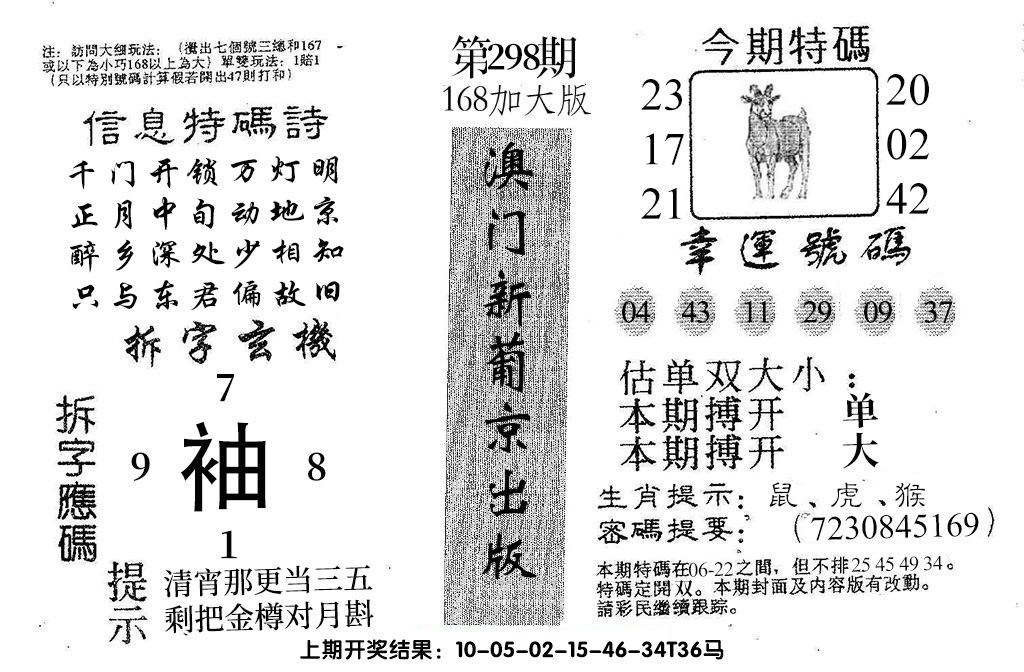 注：訪問大细玩法：（攪出七個號三總和167
或以下為小巧168以上為大）單雙玩法：1賠1
（只以特別號碼計算假若開出47則打和）
信息特碼詩
千门开锁万灯明
正月中旬动地京
醉乡深处少相知
只与东君偏故旧
拆字玄機
拆字應碼
7
9 袖 8
1
提示
清宵那更当三五
剩把金樽对月斟
第298期
168加大版
澳门新葡京出版
今期特碼
23 20
17 02
21 42
幸運號碼
04 43 11 29 09 37
估单双大小：
本期搏开 单
本期搏开 大
生肖提示：鼠、虎、猴
密碼提要：（7230845169）
本期特碼在06-22之間，但不排25 45 49 34。
特碼定開双。本期封面及内容版有改動。
請彩民繼續跟踪。
上期开奖结果：10-05-02-15-46-34T36马